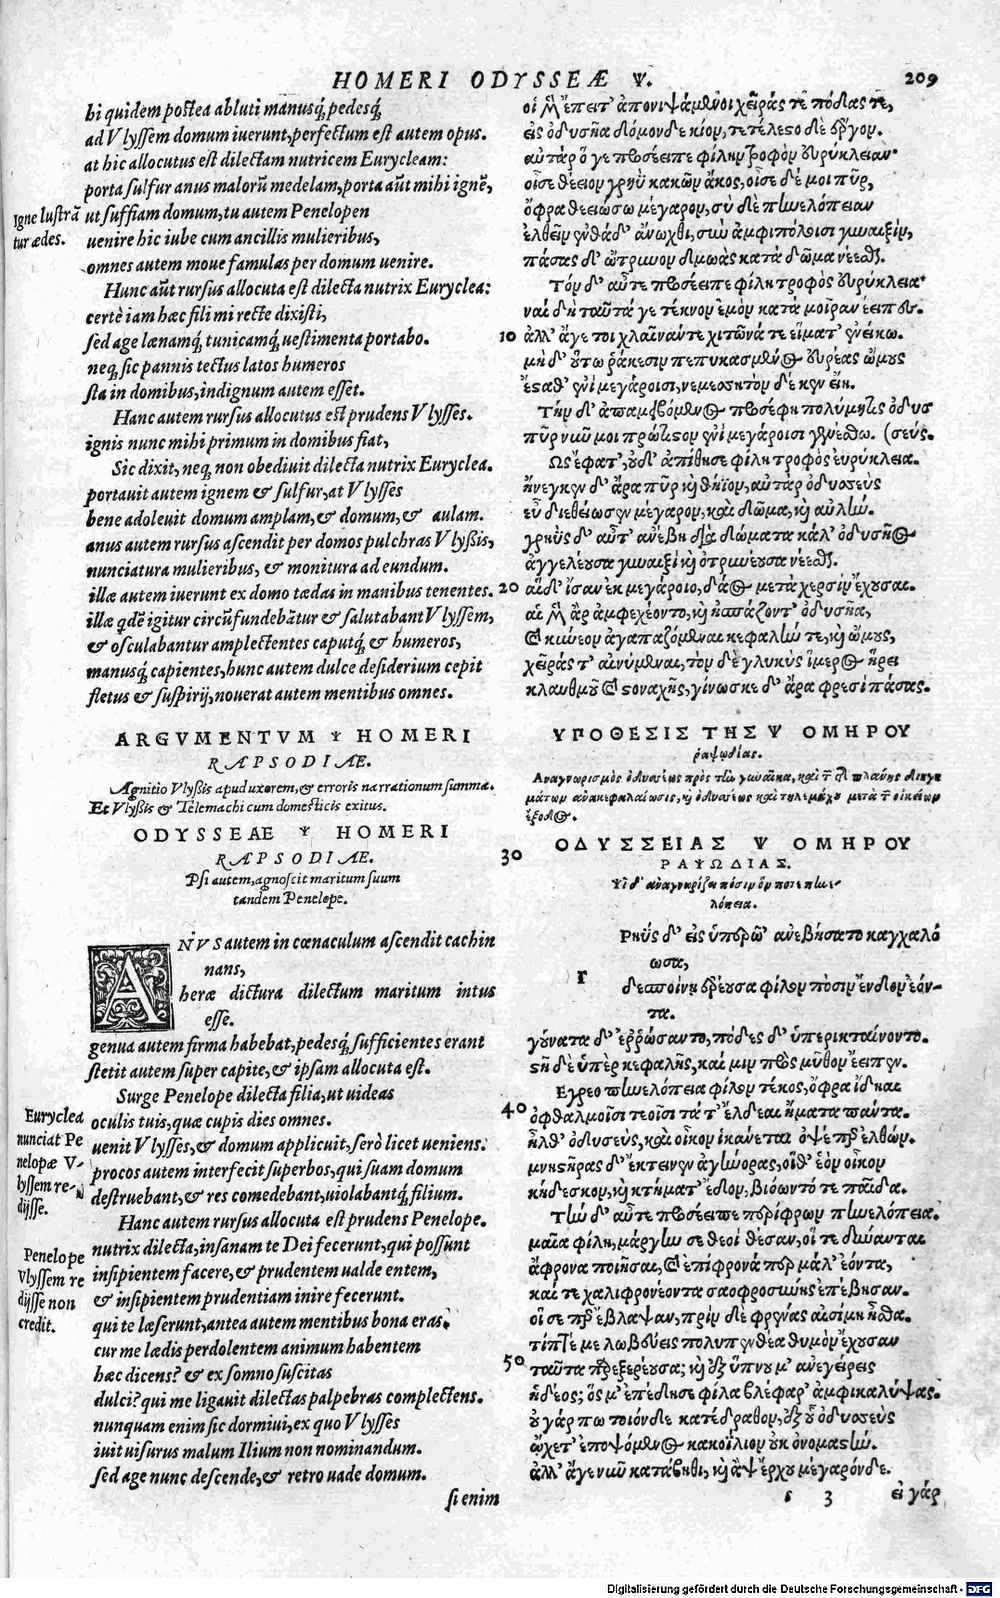 HOMERI ODYSSEÆ Ψ. 209
hi quidem postea abluti manusq́; pedesq́;
ad Vlyssem domum iuerunt, perfectum est autem opus.
at hic allocutus est dilectam nutricem Eurycleam:
porta sulfur anus malorũ medelam, porta aũt mihi ignẽ,
ut suffiam domum, tu autem Penelopen
uenire hic iube cum ancillis mulieribus,
omnes autem moue famulas per domum uenire.
Hunc aũt rursus allocuta est dilecta nutrix Euryclea:
certè iam hæc fili mi recte dixisti,
sed age lænamq́; tunicamq́; uestimenta portabo.
neq; sic pannis tectus latos humeros
sta in domibus, indignum autem esset.
Hanc autem rursus allocutus est prudens Vlysses.
ignis nunc mihi primum in domibus fiat,
Sic dixit, neq; non obediuit dilecta nutrix Euryclea.
portauit autem ignem & sulfur, at Vlysses
bene adoleuit domum amplam, & domum, & aulam.
anus autem rursus ascendit per domos pulchras Vlyßis,
nunciatura mulieribus, & monitura ad eundum.
illæ autem iuerunt ex domo tædas in manibus tenentes.
illæ qdẽ igitur circũfundebãtur & salutabant Vlyssem,
& osculabantur amplectentes caputq́; & humeros,
manusq́; capientes, hunc autem dulce desiderium cepit
fletus & suspirij, nouerat autem mentibus omnes.
Igne lustrã
tur ædes.
ARGVMENTVM Ψ HOMERI
RAPSODIÆ.
Agnitio Vlyßis apud uxorem, & erroris narrationum summa.
Et Vlyßis & Telemachi cum domesticis exitus.
ODYSSEAE Ψ HOMERI
RAPSODIÆ.
Psi autem, agnoscit maritum suum
tandem Penelope.
ANVS autem in cœnaculum ascendit cachin
nans,
heræ dictura dilectum maritum intus
esse.
genua autem firma habebat, pedesq́; sufficientes erant
stetit autem super capite, & ipsam allocuta est.
Surge Penelope dilecta filia, ut uideas
oculis tuis, quæ cupis dies omnes.
uenit Vlysses, & domum applicuit, serò licet ueniens.
procos autem interfecit superbos, qui suam domum
destruebant, & res comedebant, uiolabantq́; filium.
Hanc autem rursus allocuta est prudens Penelope.
nutrix dilecta, insanam te Dei fecerunt, qui possunt
insipientem facere, & prudentem ualde entem,
& insipientem prudentiam inire fecerunt.
qui te læserunt, antea autem mentibus bona eras,
cur me lædis perdolentem animum habentem
hæc dicens? & ex somno suscitas
dulci? qui me ligauit dilectas palpebras complectens.
nunquam enim sic dormiui, ex quo Vlysses
iuit uisurus malum Ilium non nominandum.
sed age nunc descende, & retro uade domum.
si enim
Euryclea
nunciat Pe
nelopæ V-
lyssem re-
dijsse.
Penelope
Vlyssem re
dijsse non
credit.
οἱ μὲν ἔπειτ' ἀπονιψάμενοι χεῖράς τε πόδας τε,
εἰς ὀδυσῆα δόμονδε κίον, τετέλεστο δὲ ἔργον.
αὐτὰρ ὅ γε προσέειπε φίλην τροφὸν εὐρύκλειαν·
οἶσε θέειον γρηῢ κακῶν ἄκος, οἶσε δέ μοι πῦρ,
ὄφρα θεειώσω μέγαρον, σὺ δὲ πηνελόπειαν
ἐλθεῖν ἐνθάδ' ἄνωχθι, σὺν ἀμφιπόλοισι γυναιξίν,
πάσας δ' ὤτρυνον δμωὰς κατὰ δῶμα νέεσθαι.
Τόν δ' αὖτε προσέειπε φίλη τροφὸς εὐρύκλεια·
ναὶ δὴ ταῦτά γε τέκνον ἐμὸν κατὰ μοῖραν ἔειπες.
10 ἀλλ' ἄγε τοι χλαῖνάν τε χιτῶνά τε εἵματ' ἐνείκω.
μὴ δ' οὕτω ῥάκεσιν πεπυκασμένος εὐρέας ὤμους
ἕσαθ' ἐνὶ μεγάροισι, νεμεσητὸν δέ κεν εἴη.
Τὴν δ' ἀπαμειβόμενος προσέφη πολύμητις ὀδυς
πῦρ νῦν μοι πρώτιστον ἐνὶ μεγάροισι γενέσθω. (σεύς.
Ως ἔφατ', οὐδ' ἀπίθησε φίλη τροφὸς εὐρύκλεια.
ἤνεγκεν δ' ἄρα πῦρ καὶ θήϊον, αὐτὰρ ὀδυσσεὺς
εὖ διεθείωσεν μέγαρον, καὶ δῶμα, καὶ αὐλήν.
γρηῢς δ' αὖτ' ἀνέβη διὰ δώματα κάλ' ὀδυσῆος
ἀγγελέουσα γυναιξὶ καὶ ὀτρυνέουσα νέεσθαι.
20 αἱ δ' ἴσαν ἐκ μεγάροιο, δάος μετὰ χερσὶν ἔχουσαι.
αἱ μὲν ἄρ ἀμφεχέοντο, καὶ ἠσπάζοντ' ὀδυσῆα,
καὶ κύνεον ἀγαπαζόμεναι κεφαλήν τε, καὶ ὤμους,
χεῖράς τ' αἰνύμεναι, τὸν δὲ γλυκὺς ἵμερος ᾕρει
κλαυθμοῦ καὶ στοναχῆς, γίνωσκε δ' ἄρα φρεσὶ πάσας.
ΥΠΟΘΕΣΙΣ ΤΗΣ Ψ ΟΜΗΡΟΥ
ῥαψῳδίας.
Αναγνωρισμὸς ὀδυσσέως πρὸς τὴν γυναῖκα, καὶ τῶν τῆς πλάνης διηγη
μάτων ἀνακεφαλαίωσις, καὶ ὀδυσσέως καὶ τηλεμάχου μετὰ τῶν οἰκείων
ἔξοδος.
30 ΟΔΥΣΣΕΙΑΣ Ψ ΟΜΗΡΟΥ
ΡΑΨΩΔΙΑΣ.
Ψῖ δ' ἀναγνωρίζει πόσιν ὅν ποτε πηνε-
λόπεια.
Γ Ρηῢς δ' εἰς ὑπερῷ' ἀνεβήσατο καγχαλό
ωσα,
δεσποίνῃ ἐρέουσα φίλον πόσιν ἔνδον ἐόν-
τα.
γούνατα δ' ἐῤῥώσαντο, πόδες δ' ὑπερικταίνοντο.
στῆ δὲ ὑπὲρ κεφαλῆς, καί μιν πρὸς μῦθον ἔειπεν.
Εγρεο πηνελόπεια φίλον τέκος, ὄφρα ἴδηαι
40 ὀφθαλμοῖσι τεοῖσι τά τ' ἔλδεαι ἤματα πάντα.
ἦλθ' ὀδυσεὺς, καὶ οἶκον ἱκάνεται ὀψέ περ ἐλθών.
μνηστῆρας δ' ἔκτεινεν ἀγήνορας, οἵθ' ἑὸν οἶκον
κήδεσκον, καὶ κτήματ' ἔδον, βιόωντό τε παῖδα.
Τὴν δ' αὖτε προσέειπε περίφρων πηνελόπεια.
μαῖα φίλη, μάργην σε θεοὶ θέσαν, οἵ τε δύνανται
ἄφρονα ποιῆσαι, καὶ ἐπίφρονά περ μάλ' ἐόντα,
καί τε χαλιφρονέοντα σαοφροσύνης ἐπέβησαν.
οἵ σε περ ἔβλαψαν, πρὶν δὲ φρένας αἰσίμη ἦσθα.
τίπτε με λωβεύεις πολυπενθέα θυμὸν ἔχουσαν
50 ταῦτα παρεξερέουσα; καὶ ἐξ ὕπνου μ' ἀνεγείρεις
ἡδέος; ὅς μ' ἐπέδησε φίλα βλέφαρ' ἀμφικαλύψας.
οὐ γάρ πω τοιόνδε κατέδραθον, ἐξ οὗ ὀδυσσεὺς
ᾤχετ' ἐποψόμενος κακοΐλιον οὐκ ὀνομαστήν.
ἀλλ' ἄγε νῦν κατάβηθι, καὶ ἂψ ἔρχου μέγαρόνδε.
s 3 εἰ γάρ
Digitalisierung gefördert durch die Deutsche Forschungsgemeinschaft - DFG